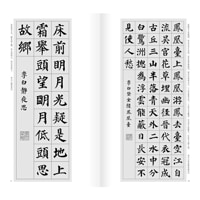 鳳凰臺上鳳凰遊鳳去臺空江自
流吳宮花草埋幽徑晉代衣冠成
古丘三山半落青天外二水中分
白鷺洲總為浮雲能蔽日長安不
見使人愁
李白登金陵鳳凰臺
床前明月光疑是地上
霜舉頭望明月低頭思
故鄉
李白靜夜思